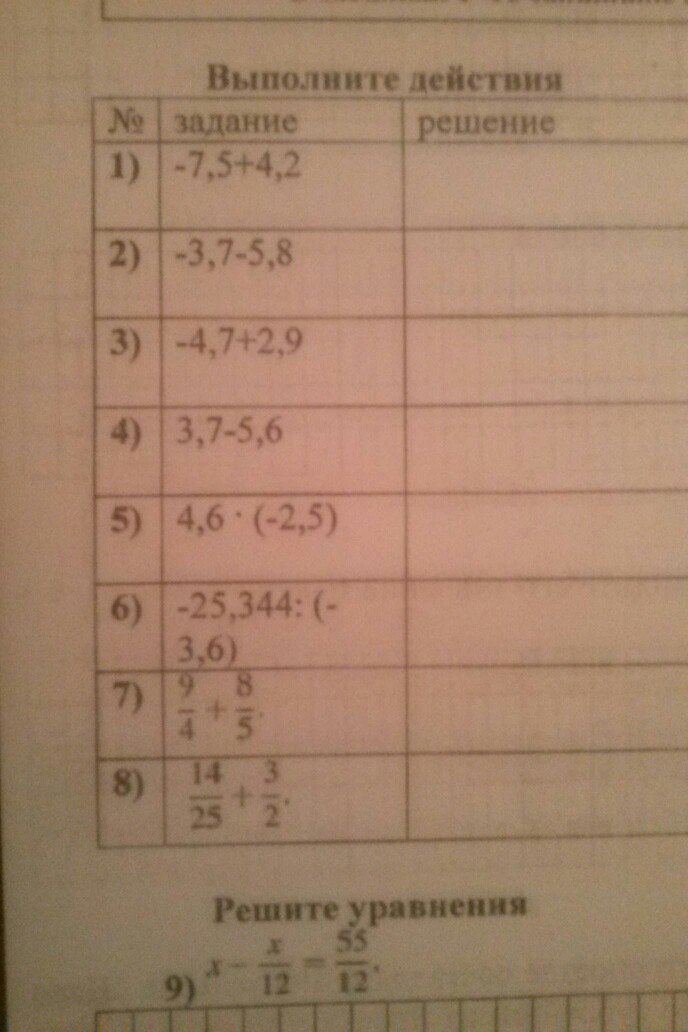 Выполните действия
№ задание решение
1) -7,5+4,2
2) -3,7-5,8
3) -4,7+2,9
4) 3,7-5,6
5) 4,6 · (-2,5)
6) -25,344: (-
3,6)
7) 9/4 + 8/5.
8) 14/25 + 3/2.
Решите уравнения
9) x - x/12 = 55/12.